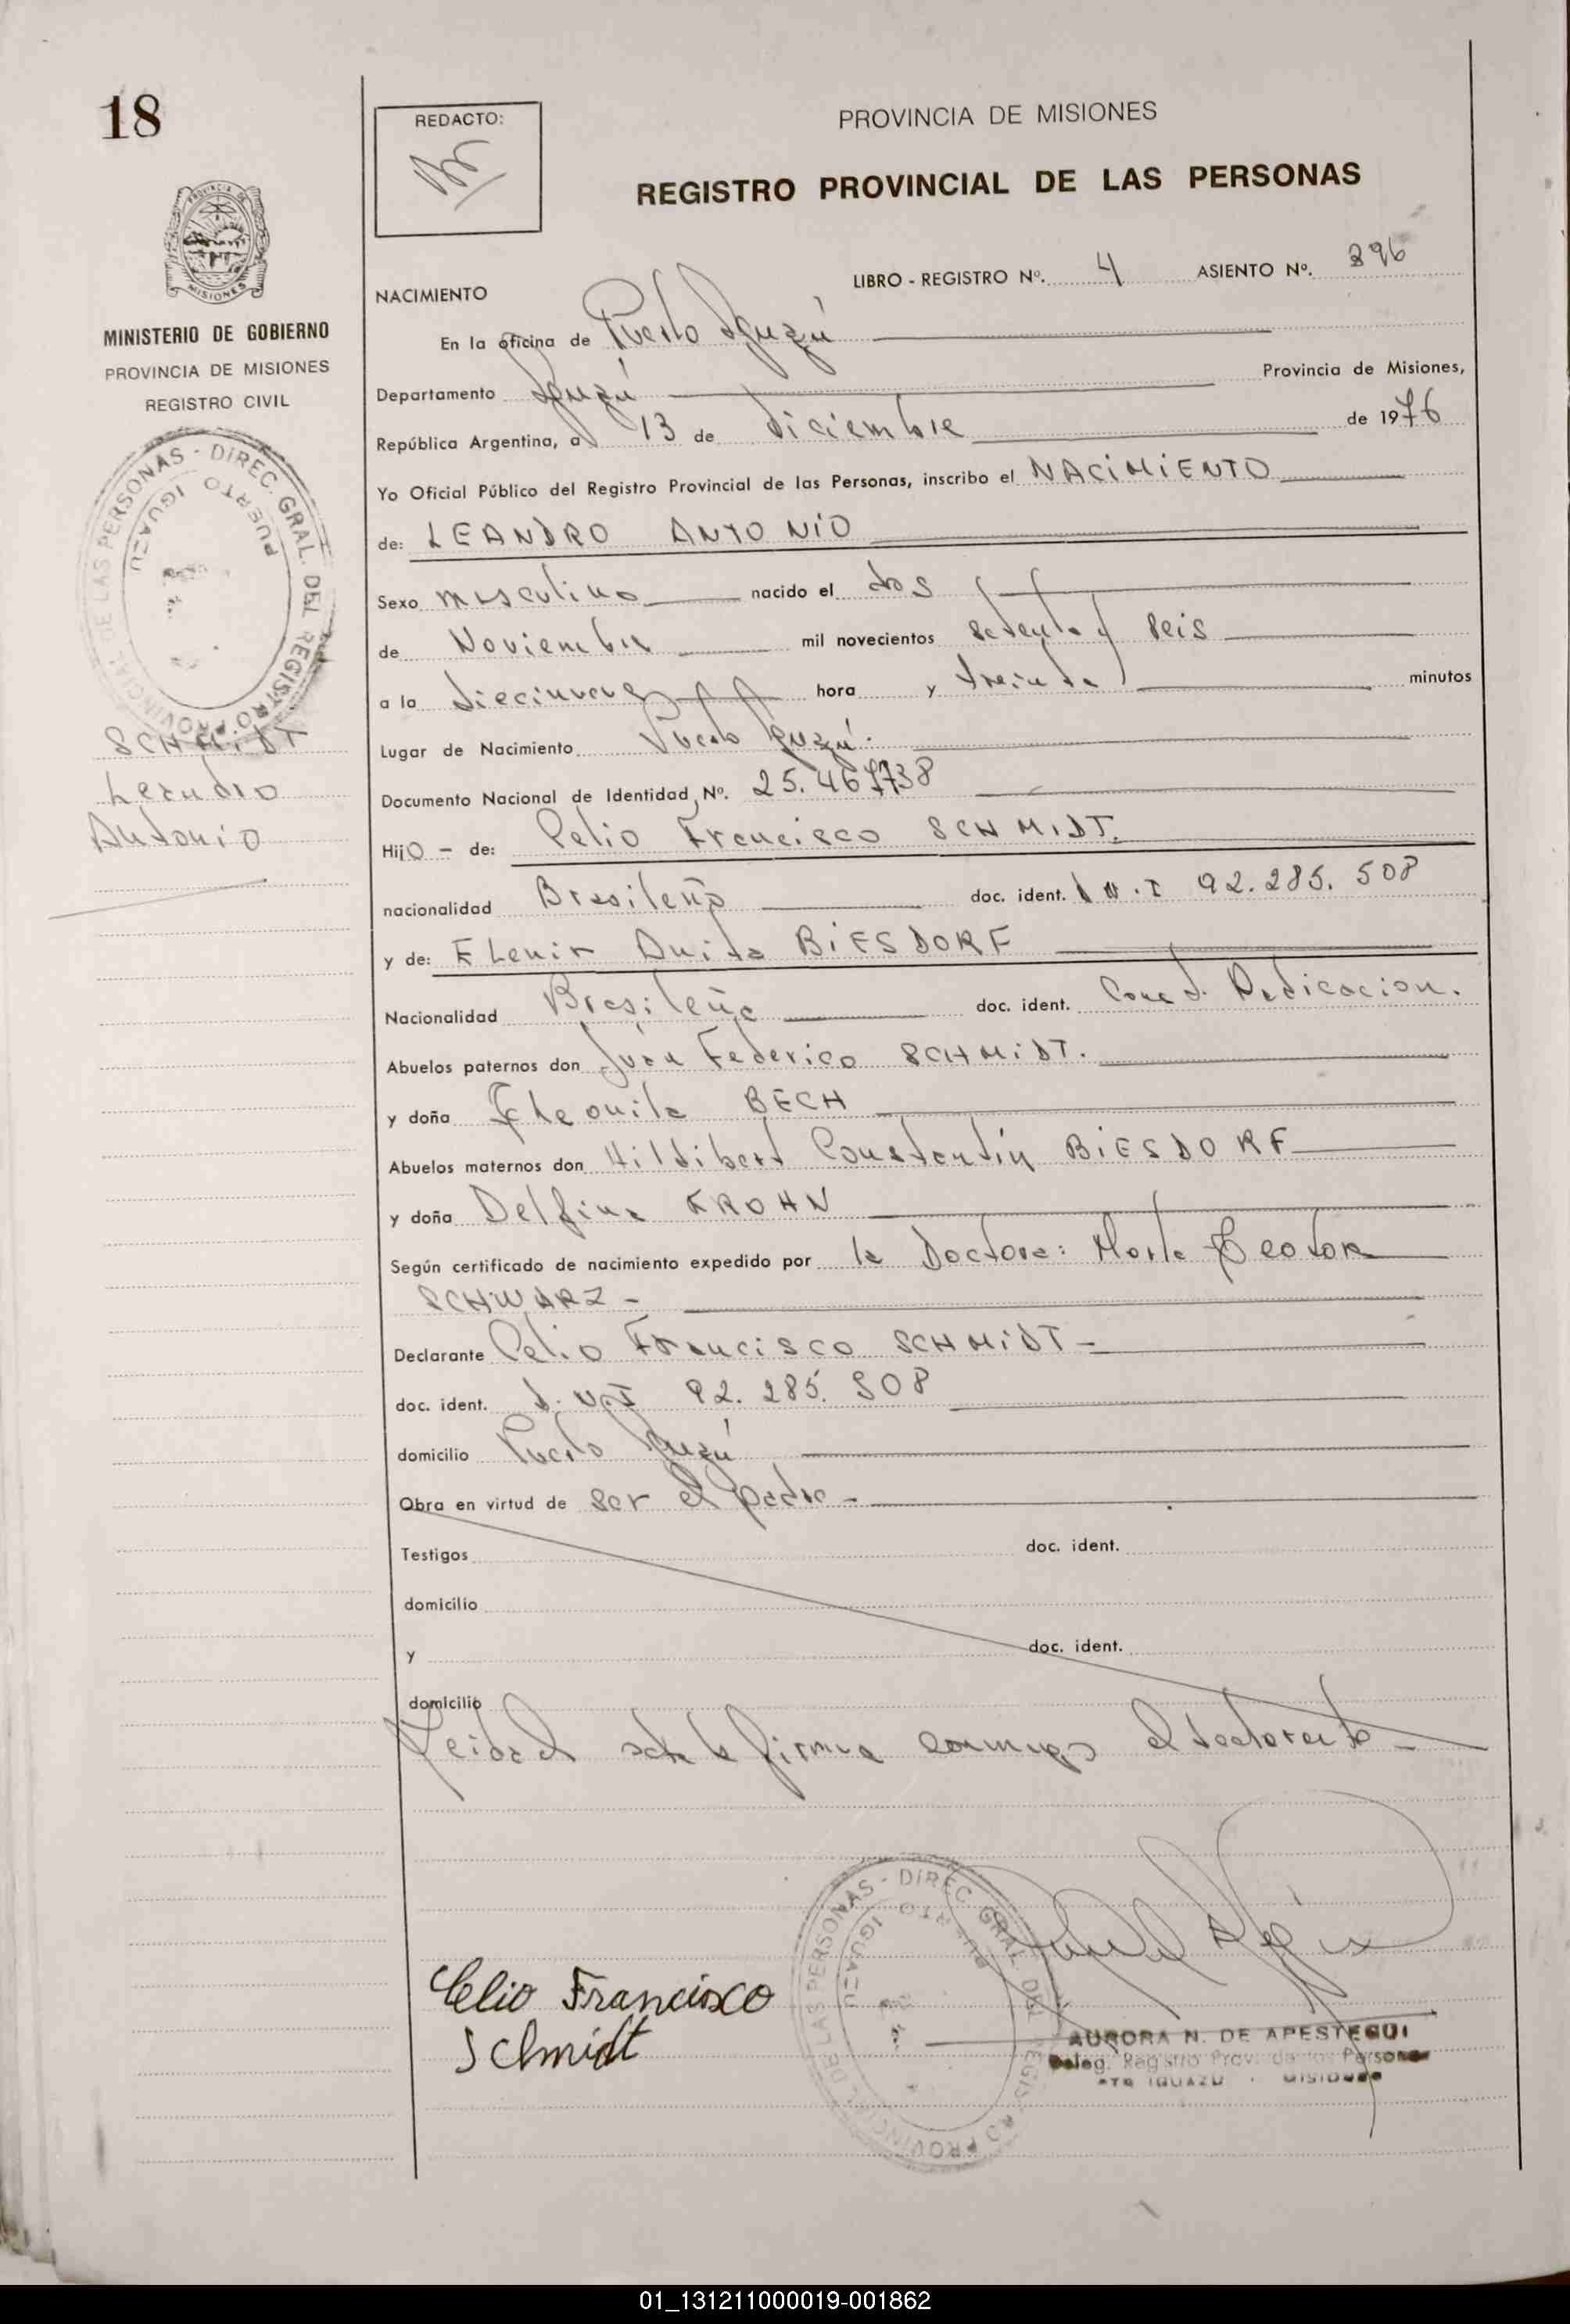 18
REDACTO:
PROVINCIA DE MISIONES
REGISTRO PROVINCIAL DE LAS PERSONAS
PROVINCIA DE
MISIONES
MINISTERIO DE GOBIERNO
PROVINCIA DE MISIONES
REGISTRO CIVIL
DIREC. GRAL. DEL REGISTRO PROVINCIAL DE LAS PERSONAS -
PUERTO IGUAZU
SCHMIDT
Leandro
Antonio
LIBRO - REGISTRO Nº. 4 ASIENTO Nº. 396
NACIMIENTO
En la oficina de Puerto Iguazú
Departamento Iguazú Provincia de Misiones,
República Argentina, a 13 de diciembre de 1976
Yo Oficial Público del Registro Provincial de las Personas, inscribo el NACIMIENTO
de: LEANDRO ANTONIO
Sexo masculino nacido el dos
de Noviembre mil novecientos setenta y seis
a la diecinueve hora y treinta minutos
Lugar de Nacimiento Puerto Iguazú.
Documento Nacional de Identidad Nº. 25.467.738
HijO - de: Celio Francisco SCHMIDT.
nacionalidad Brasileño doc. ident. D.N.I 92.285.508
y de: Elenir Anita BIESDORF
Nacionalidad Brasileña doc. ident.
Abuelos paternos don Juan Federico SCHMIDT.
y doña BECH
Abuelos maternos don Hildibert Constantín BIESDORF
y doña Delfina KROHN
Según certificado de nacimiento expedido por la Doctora: Marta
SCHWARZ -
Declarante Celio Francisco SCHMIDT -
doc. ident. D.N.I 92.285.508
domicilio Puerto Iguazú
Obra en virtud de ser el padre -
Testigos doc. ident.
domicilio
y doc. ident.
domicilio
Leida el acta la firma conmigo el declarante -
DIREC. GRAL. DEL REGISTRO PROVINCIAL DE LAS PERSONAS -
PUERTO IGUAZU
Celio Francisco
Schmidt
AURORA N. DE APESTEGUI
Deleg. Registro Prov. de las Personas
PTO IGUAZU - MISIONES
01_131211000019-001862